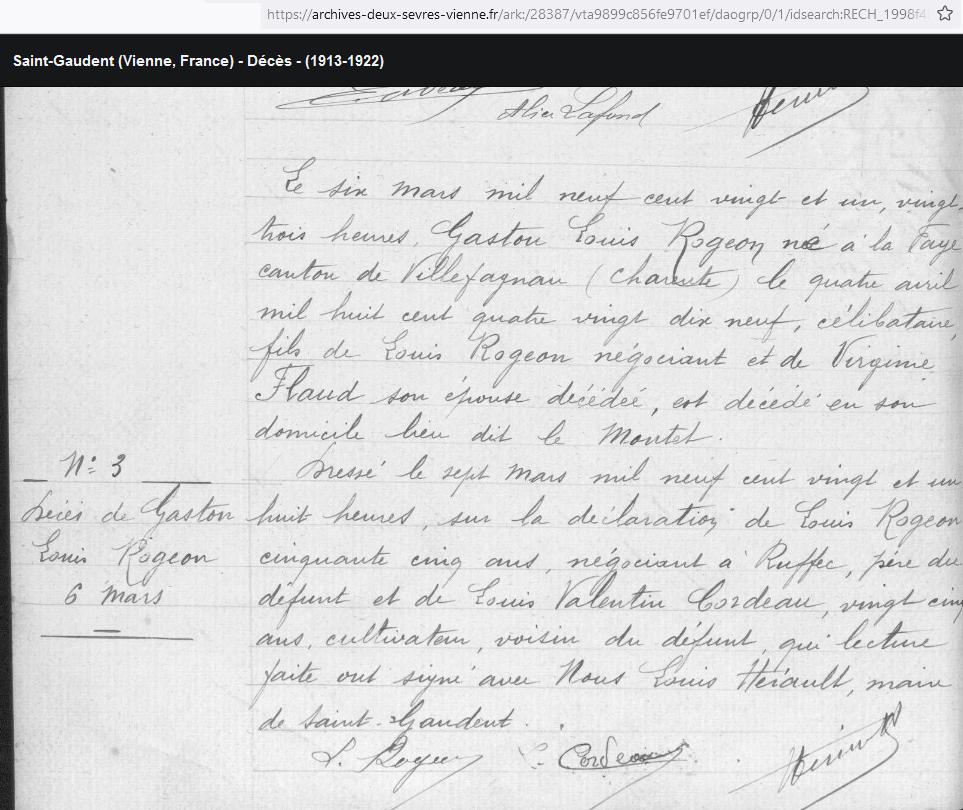 https://archives-deux-sevres-vienne.fr/ark:/28387/vta9899c856fe9701ef/daogrp/0/1/idsearch:RECH_1998f4
Saint-Gaudent (Vienne, France) - Décès - (1913-1922)
Alice Lafond
Le six mars mil neuf cent vingt et un, vingt-
trois heures, Gaston Louis Rogeon né à la Faye
canton de Villefagnan (Charente) le quatre avril
mil huit cent quatre vingt dix neuf, célibataire,
fils de Louis Rogeon négociant et de Virginie
Flaud son épouse décédée, est décédé en son
domicile lieu dit le Montet.
N° 3
Décès de Gaston
Louis Rogeon
6 Mars
Dressé le sept mars mil neuf cent vingt et un
huit heures, sur la déclaration de Louis Rogeon
cinquante cinq ans, négociant à Ruffec, père du
défunt et de Louis Valentin Cordeau, vingt cinq
ans, cultivateur, voisin du défunt, qui lecture
faite ont signé avec Nous Louis Hérault, maire
de Saint-Gaudent.
L. Rogeon L. Cordeau Hérault